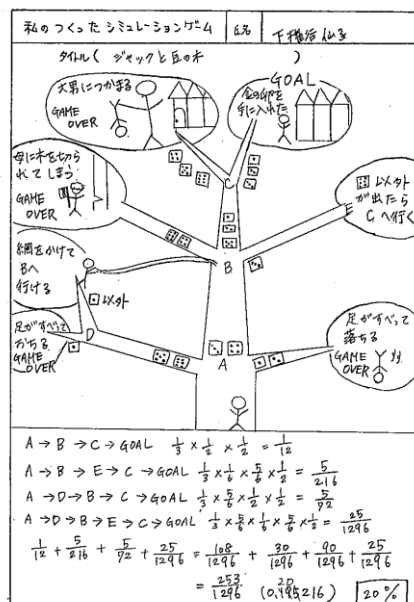 私のつくったシミュレーションゲーム
氏名
タイトル( ジャックと豆の木 )
大男につかまる
GAME
OVER
GOAL
金の卵を
手に入れた
C
母に木を切ら
れてしまう
GAME
OVER
以外
が出たら
Cへ行く
綱をかけて
Bへ
行ける
B
以外
足がすべって
おちる
GAME
OVER
D
A
足がすべって
落ちる
GAME
OVER
A → B → C → GOAL 1/3 × 1/2 × 1/2 = 1/12
A → B → E → C → GOAL 1/3 × 1/6 × 5/6 × 1/2 = 5/216
A → D → B → C → GOAL 1/3 × 5/6 × 1/2 × 1/2 = 5/72
A → D → B → E → C → GOAL 1/3 × 5/6 × 1/6 × 5/6 × 1/2 = 25/1296
1/12 + 5/216 + 5/72 + 25/1296 = 108/1296 + 30/1296 + 90/1296 + 25/1296
= 253/1296 20 (0.195216) 20%